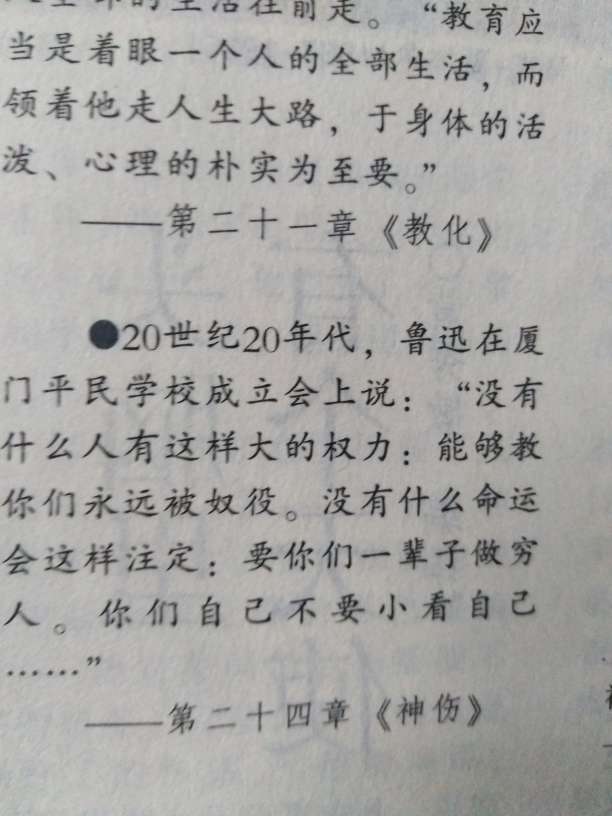 的生活往前走。“教育应
当是着眼一个人的全部生活，而
领着他走人生大路，于身体的活
泼、心理的朴实为至要。”
——第二十一章《教化》
●20世纪20年代，鲁迅在厦
门平民学校成立会上说：“没有
什么人有这样大的权力：能够教
你们永远被奴役。没有什么命运
会这样注定：要你们一辈子做穷
人。你们自己不要小看自己
……”
——第二十四章《神伤》